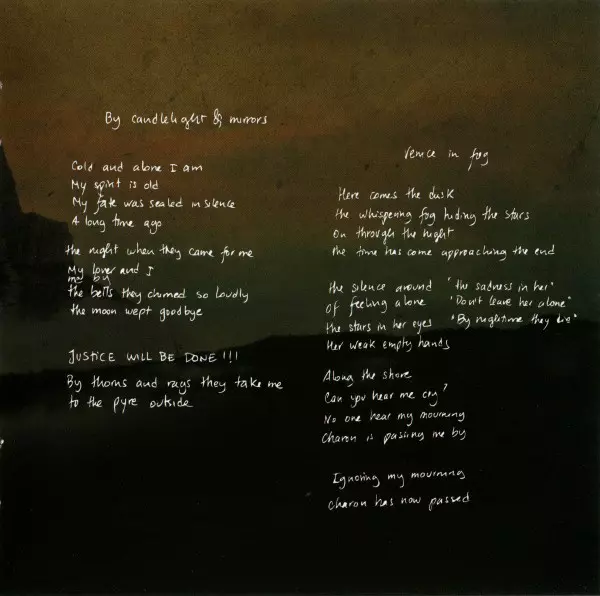 By candlelight & mirrors
Cold and alone I am
My spirit is old
My fate was sealed in silence
A long time ago
the night when they came for me
My lover and I
me by
the bells they chimed so loudly
the moon wept goodbye
JUSTICE WILL BE DONE!!!
By thorns and rags they take me
to the pyre outside
Venice in fog
Here comes the dusk
the whispering fog hiding the stars
On through the night
the time has come approaching the end
the silence around "the sadness in her"
Of feeling alone "Don't leave her alone"
the stars in her eyes "By nightime they die"
Her weak empty hands
Along the shore
Can you hear me cry?
No one hear my mourning
Charon is passing me by
Ignoring my mourning
Charon has now passed